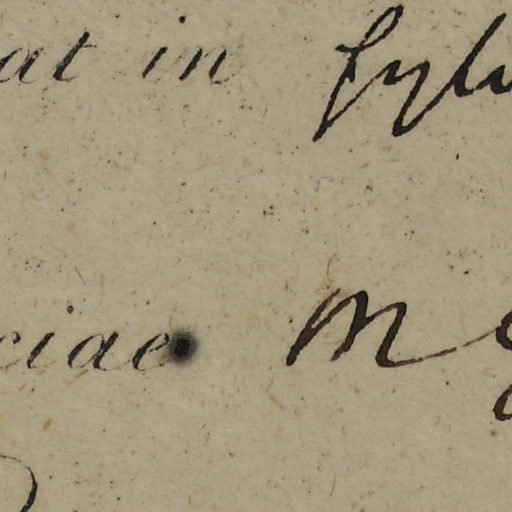 at in sylv
ciae. M